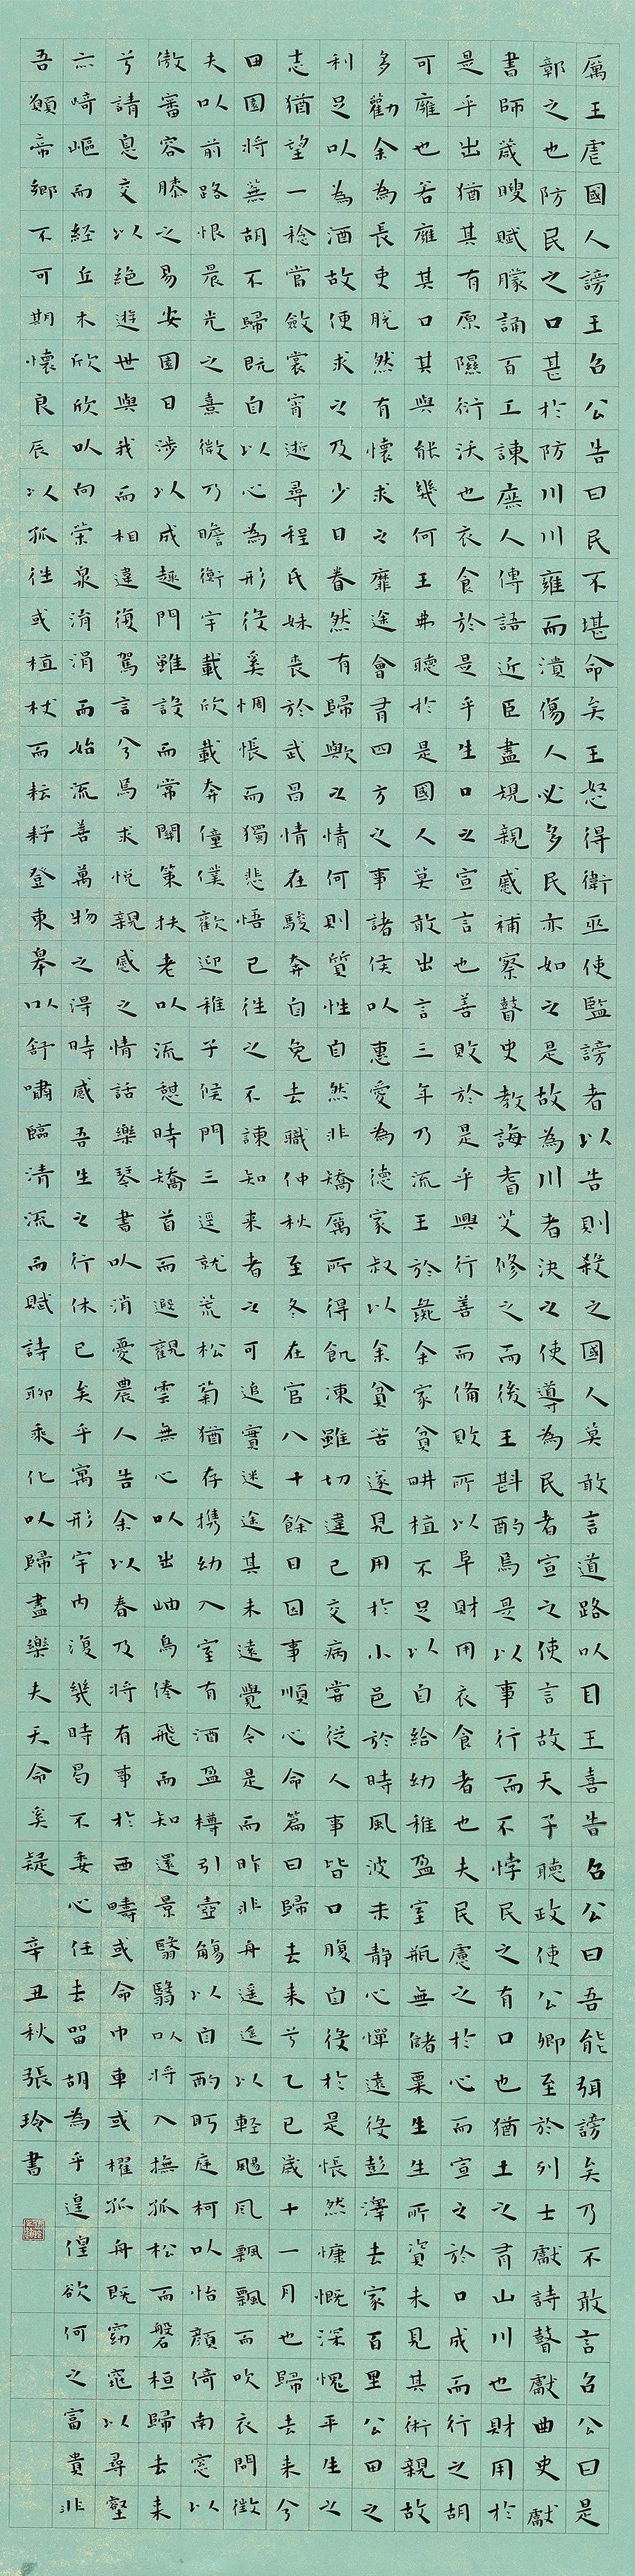 厲王虐國人謗王召公告曰民不堪命矣王怒得衛巫使監謗者以告則殺之國人莫敢言道路以目王喜告召公曰吾能弭謗矣乃不敢言召公曰是
鄣之也防民之口甚於防川川雍而潰傷人必多民亦如之是故為川者決之使導為民者宣之使言故天子聽政使公卿至於列士獻詩瞽獻曲史獻
書師箴瞍賦矇誦百工諫庶人傳語近臣盡規親戚補察瞽史教誨耆艾修之而後王斟酌焉是以事行而不悖民之有口也猶土之有山川也財用於
是乎出猶其有原隰衍沃也衣食於是乎生口之宣言也善敗於是乎興行善而備敗所以阜財用衣食者也夫民慮之於心而宣之於口成而行之胡
可雍也若雍其口其與能幾何王弗聽於是國人莫敢出言三年乃流王於彘余家貧畊植不足以自給幼稚盈室瓶無儲粟生生所資未見其術親故
多勸余為長吏脫然有懷求之靡途會有四方之事諸侯以惠愛為德家叔以余貧苦遂見用於小邑於時風波未靜心憚遠役彭澤去家百里公田之
利足以為酒故便求之及少日眷然有歸歟之情何則質性自然非矯厲所得飢凍雖切違己交病嘗從人事皆口腹自役於是悵然慷慨深愧平生之
志猶望一稔當斂裳宵逝尋程氏妹喪於武昌情在駿奔自免去職仲秋至冬在官八十餘日因事順心命篇曰歸去來兮乙巳歲十一月也歸去來兮
田園將蕪胡不歸既自以心為形役奚惆悵而獨悲悟已往之不諫知來者之可追實迷途其未遠覺今是而昨非舟遙遙以輕颺風飄飄而吹衣問徵
夫以前路恨晨光之熹微乃瞻衡宇載欣載奔僮僕歡迎稚子候門三逕就荒松菊猶存攜幼入室有酒盈樽引壺觴以自酌眄庭柯以怡顏倚南窓以
傲審容膝之易安園日涉以成趣門雖設而常關策扶老以流憩時矯首而遐觀雲無心以出岫鳥倦飛而知還景翳翳以將入撫孤松而磐桓歸去來
兮請息交以絕遊世與我而相違復駕言兮焉求悅親戚之情話樂琴書以消憂農人告余以春及將有事於西疇或命巾車或櫂孤舟既窈窕以尋壑
亦崎嶇而經丘木欣欣以向榮泉涓涓而始流善萬物之得時感吾生之行休已矣乎寓形宇內復幾時曷不委心任去留胡為乎遑遑欲何之富貴非
吾願帝鄉不可期懷良辰以孤往或植杖而耘耔登東皋以舒嘯臨清流而賦詩聊乘化以歸盡樂夫天命奚疑 辛丑秋張玲書